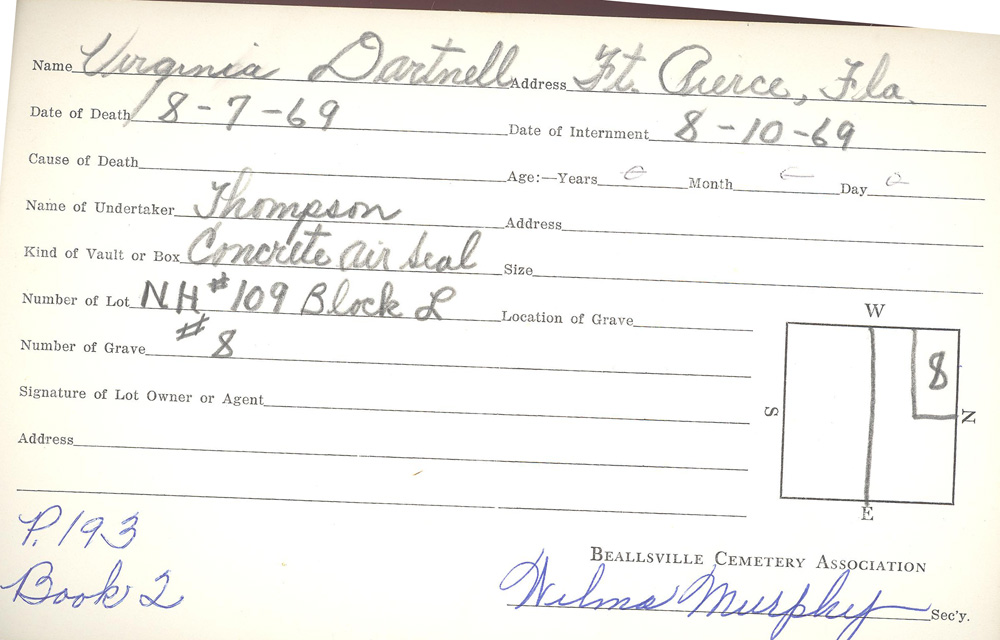 Name Virginia Dartnell Address Ft. Pierce, Fla.
Date of Death 8-7-69 Date of Internment 8-10-69
Cause of Death Age:—Years Month Day
Name of Undertaker Thompson Address
Kind of Vault or Box Concrete air seal Size
Number of Lot NH #109 Block L Location of Grave
Number of Grave # 8
Signature of Lot Owner or Agent
Address
W
8
S
N
E
P. 193
Book 2
BEALLSVILLE CEMETERY ASSOCIATION
Wilma Murphy Sec'y.